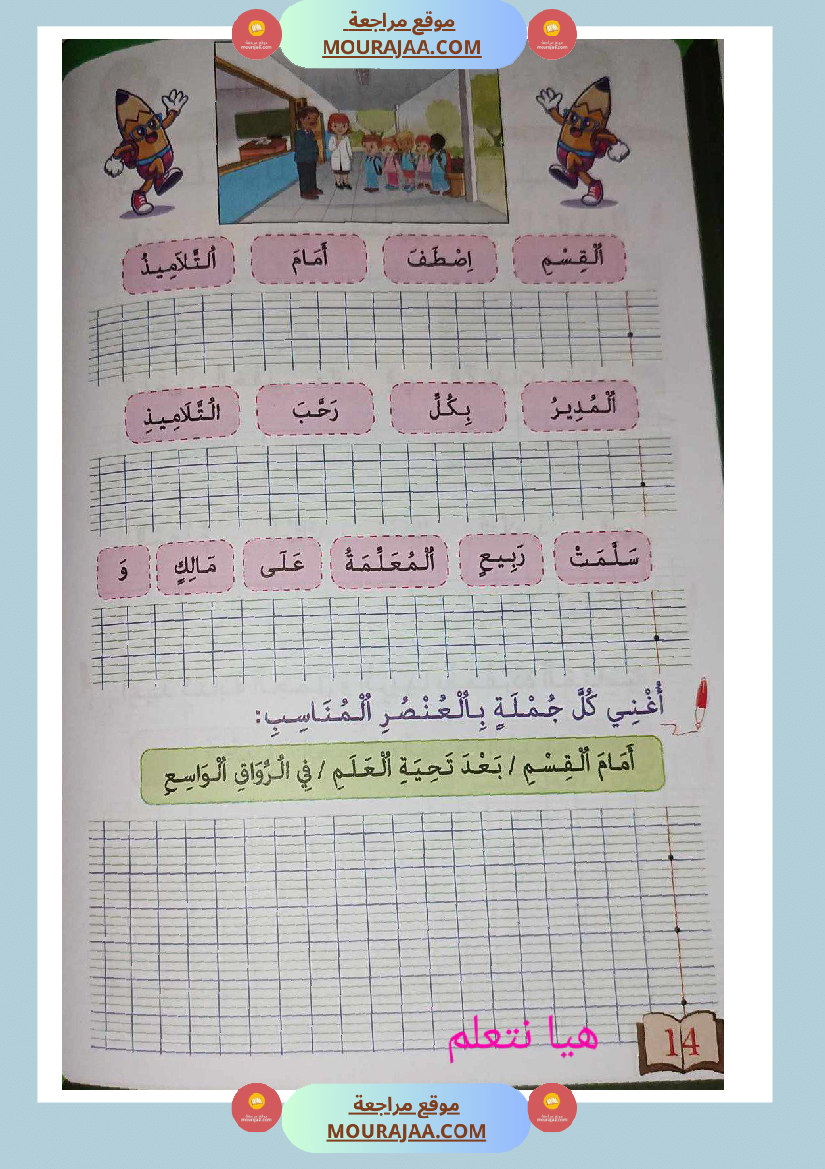 موقع مراجعة
MOURAJAA.COM
اَلْقِسْمِ اِصْطَفَ أَمَامَ اَلتَّلَامِيذُ
اَلْمُدِيرُ بِكُلِّ رَحَّبَ التَّلَامِيذِ
سَلَّمَتْ رَبِيعٍ اَلْمُعَلِّمَةُ عَلَى مَالِكٍ وَ
أُغْنِي كُلَّ جُمْلَةٍ بِالْعُنْصُرِ اَلْمُنَاسِبِ:
أَمَامَ اَلْقِسْمِ / بَعْدَ تَحِيَةِ اَلْعَلَمِ / فِي الرُّوَاقِ اَلْوَاسِعِ
هيا نتعلم
14
موقع مراجعة
MOURAJAA.COM